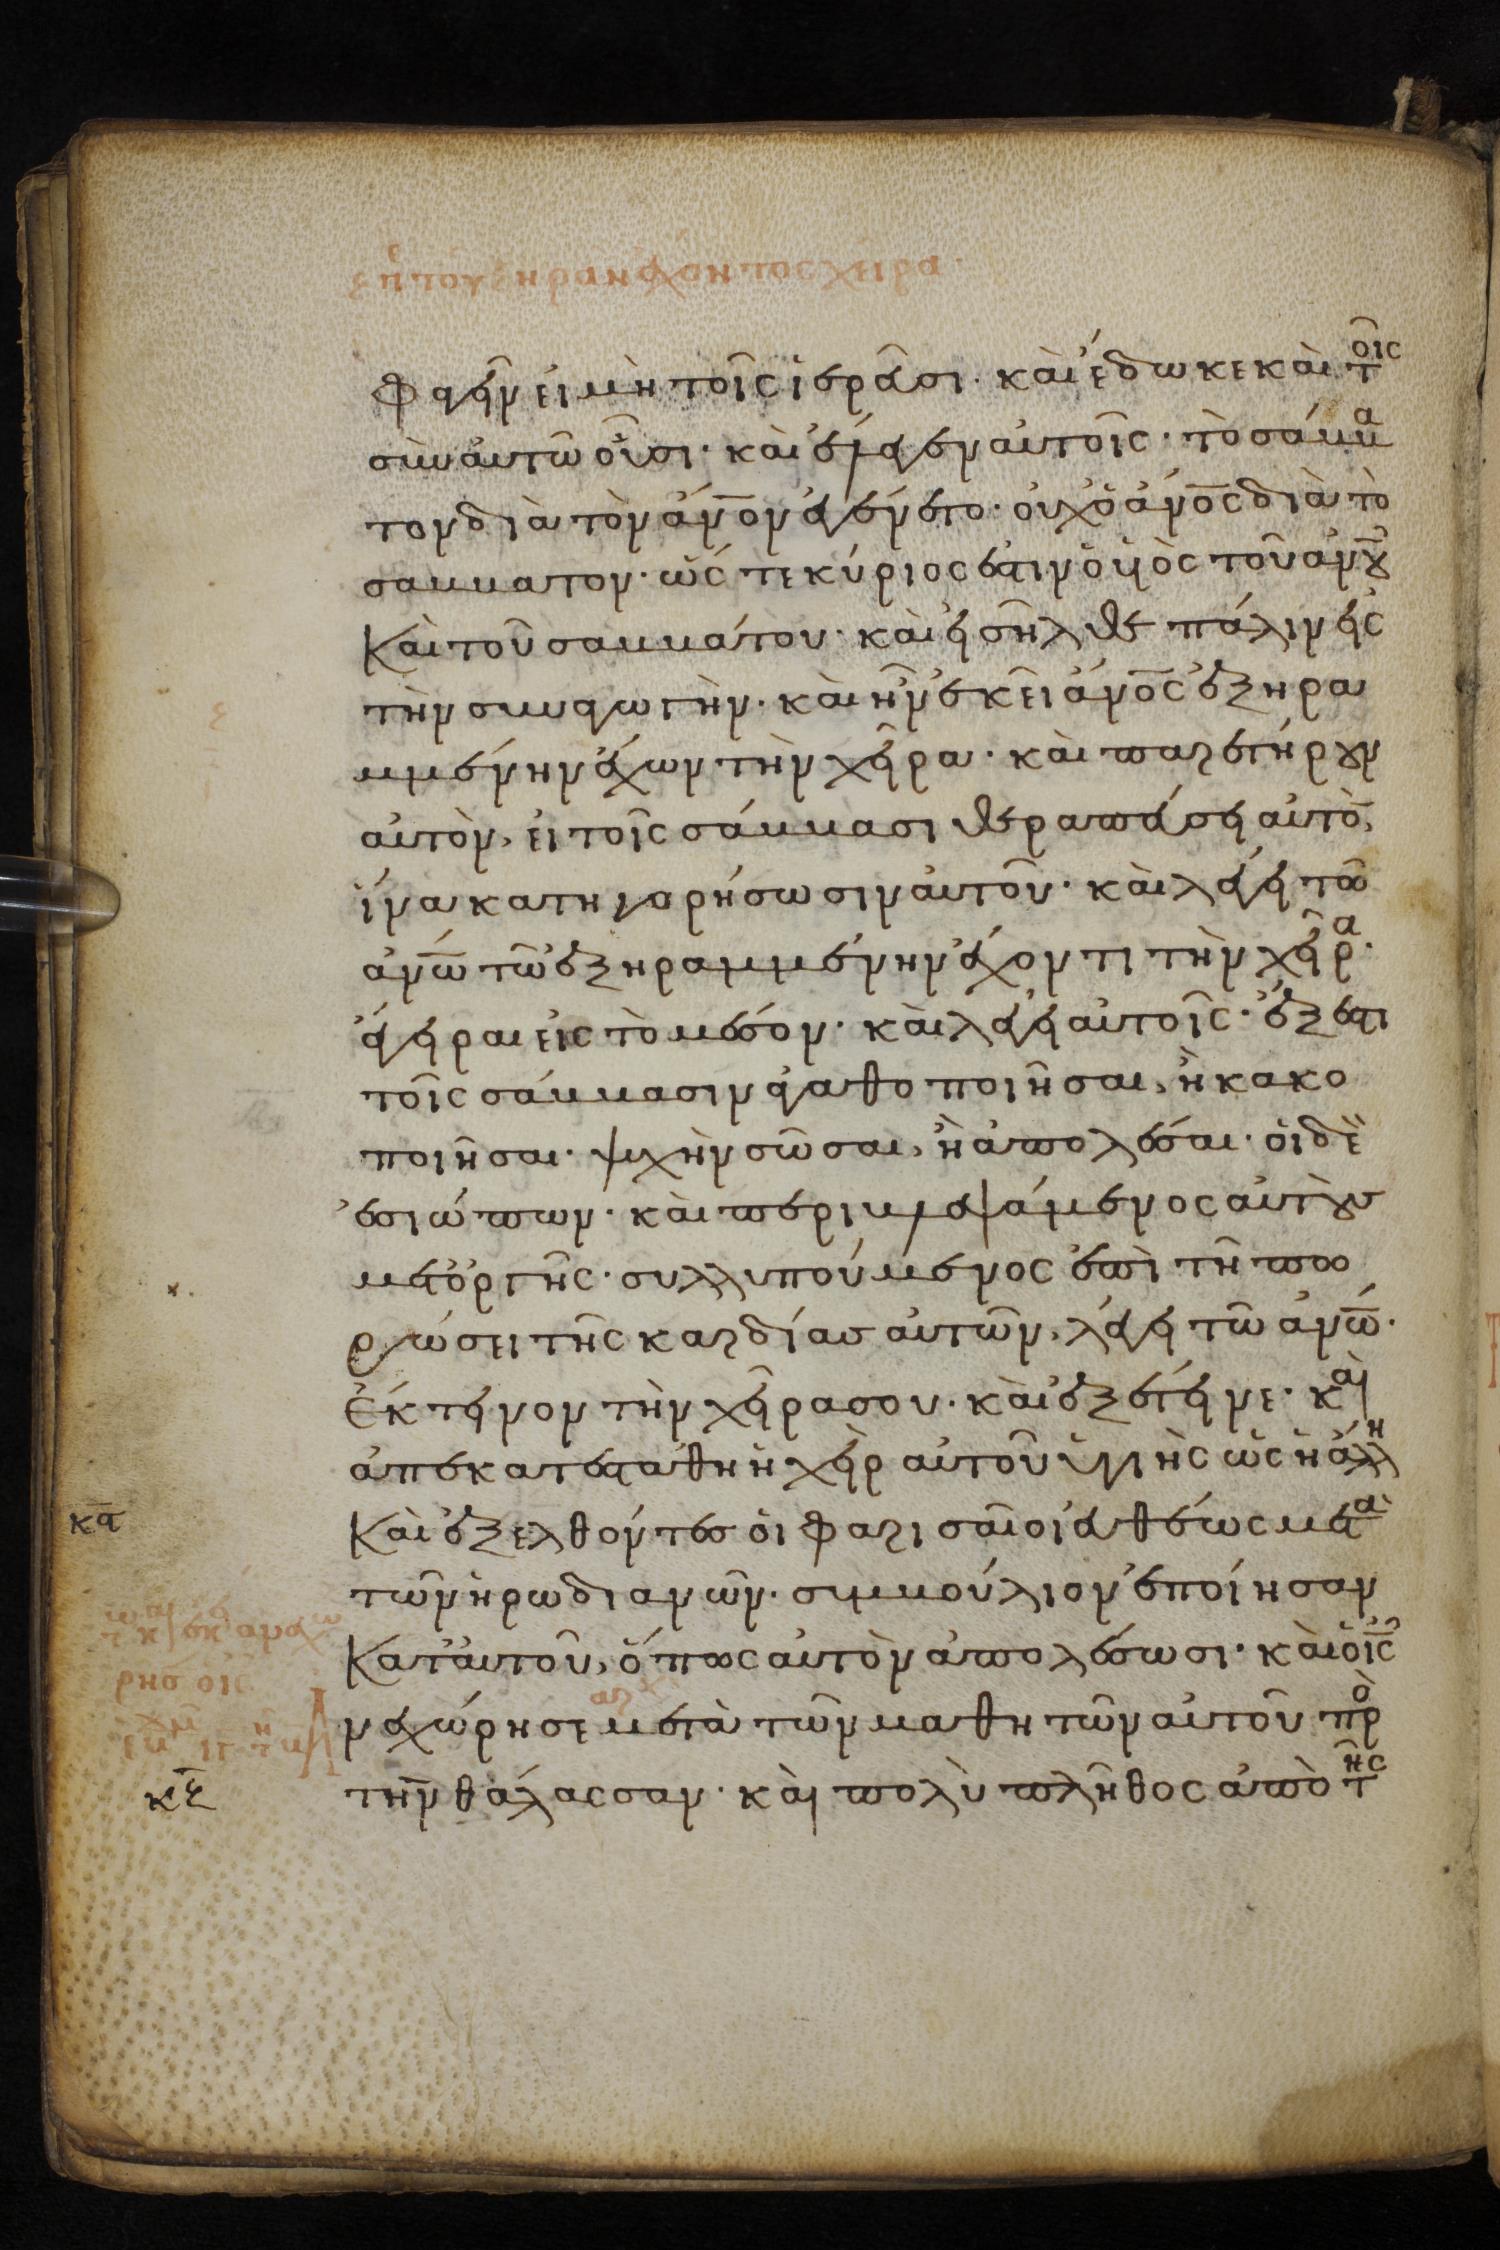 ε πτου ξηρὰν ἔχοντος χείρα·
φαγεῖν εἰ μὴ τοῖς ἱερεῦσι· καὶ ἔδωκε καὶ τοῖς
σὺν αὐτῶ οὖσι· καὶ ἔλεγεν αὐτοῖς· τὸ σάββα
τον διὰ τὸν ἄν̅ο̅ν ἐγένετο· οὐχ ὁ ἄν̅ο̅ς διὰ τὸ
σαββατον· ὥς τε κύριος ἐστιν ὁ ὑιὸς τοῦ ἀν̅ου
Καὶ τοῦ σαββάτου· καὶ εἰσῆλθε πάλιν εἰς
τὴν συναγωγὴν· καὶ ἦν ἐκεῖ ἄν̅ο̅ς ἐξηρα
μμένην ἔχων τὴν χεῖρα· καὶ παρετήρουν
αὐτὸν, εἰ τοῖς σάββασι θεραπεύσει αὐτὸ,
ἵνα κατηγορήσωσιν αὐτοῦ· καὶ λέγει τῶ
ἀν̅ω̅ τῶ ἐξηραμμένην ἔχοντι τὴν χεῖρα·
ἔγειραι εἰς τὸ μέσον· καὶ λέγει αὐτοῖς· ἔξεστι
τοῖς σάββασιν ἀγαθοποιῆσαι, ἢ κακο
ποιῆσαι· ψυχὴν σῶσαι, ἢ ἀπολέσαι· οἱ δὲ
ἐσιώπων· καὶ περιβλεψάμενος αὐτοὺς
μετ ὀργῆς· συλλυπούμενος ἐπὶ τῆ πω
ρώσει τῆς καρδίας αὐτῶν, λέγει τῶ ἀν̅ω̅·
Ἔκτεινον τὴν χεῖρα σου· καὶ ἐξέτεινε· καὶ
ἀπεκατεστάθη ἡ χεὶρ αὐτοῦ ὑγιὴς ὡς ἡ ἄλλη
κα̅ Καὶ ἐξελθόντες οἱ φαρισαῖοι εὐθέως μετὰ
τῶν ἡρωδιανῶν· συμβούλιον ἐποίησαν
Κατ αὐτοῦ, ὅπως αὐτὸν ἀπολέσωσι· καὶ ὁ ι̅ς̅
ἀνεχώρησε μετὰ τῶν μαθητῶν αὐτοῦ πρὸ
τὴν θάλασσαν· καὶ πολὺ πλῆθος ἀπὸ τῆς